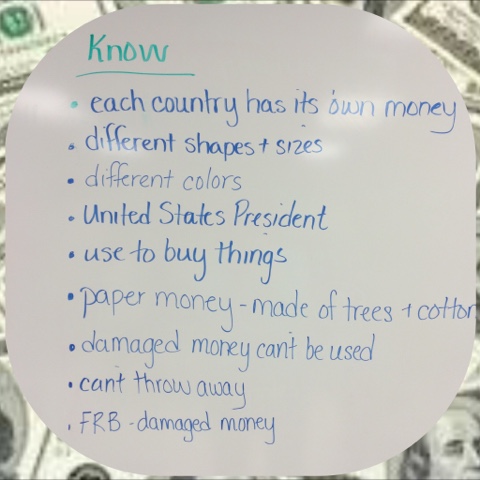 Know
• each country has its own money
• different shapes + sizes
• different colors
• United States President
• use to buy things
• paper money - made of trees + cotton
• damaged money can't be used
• cant throw away
• FRB - damaged money